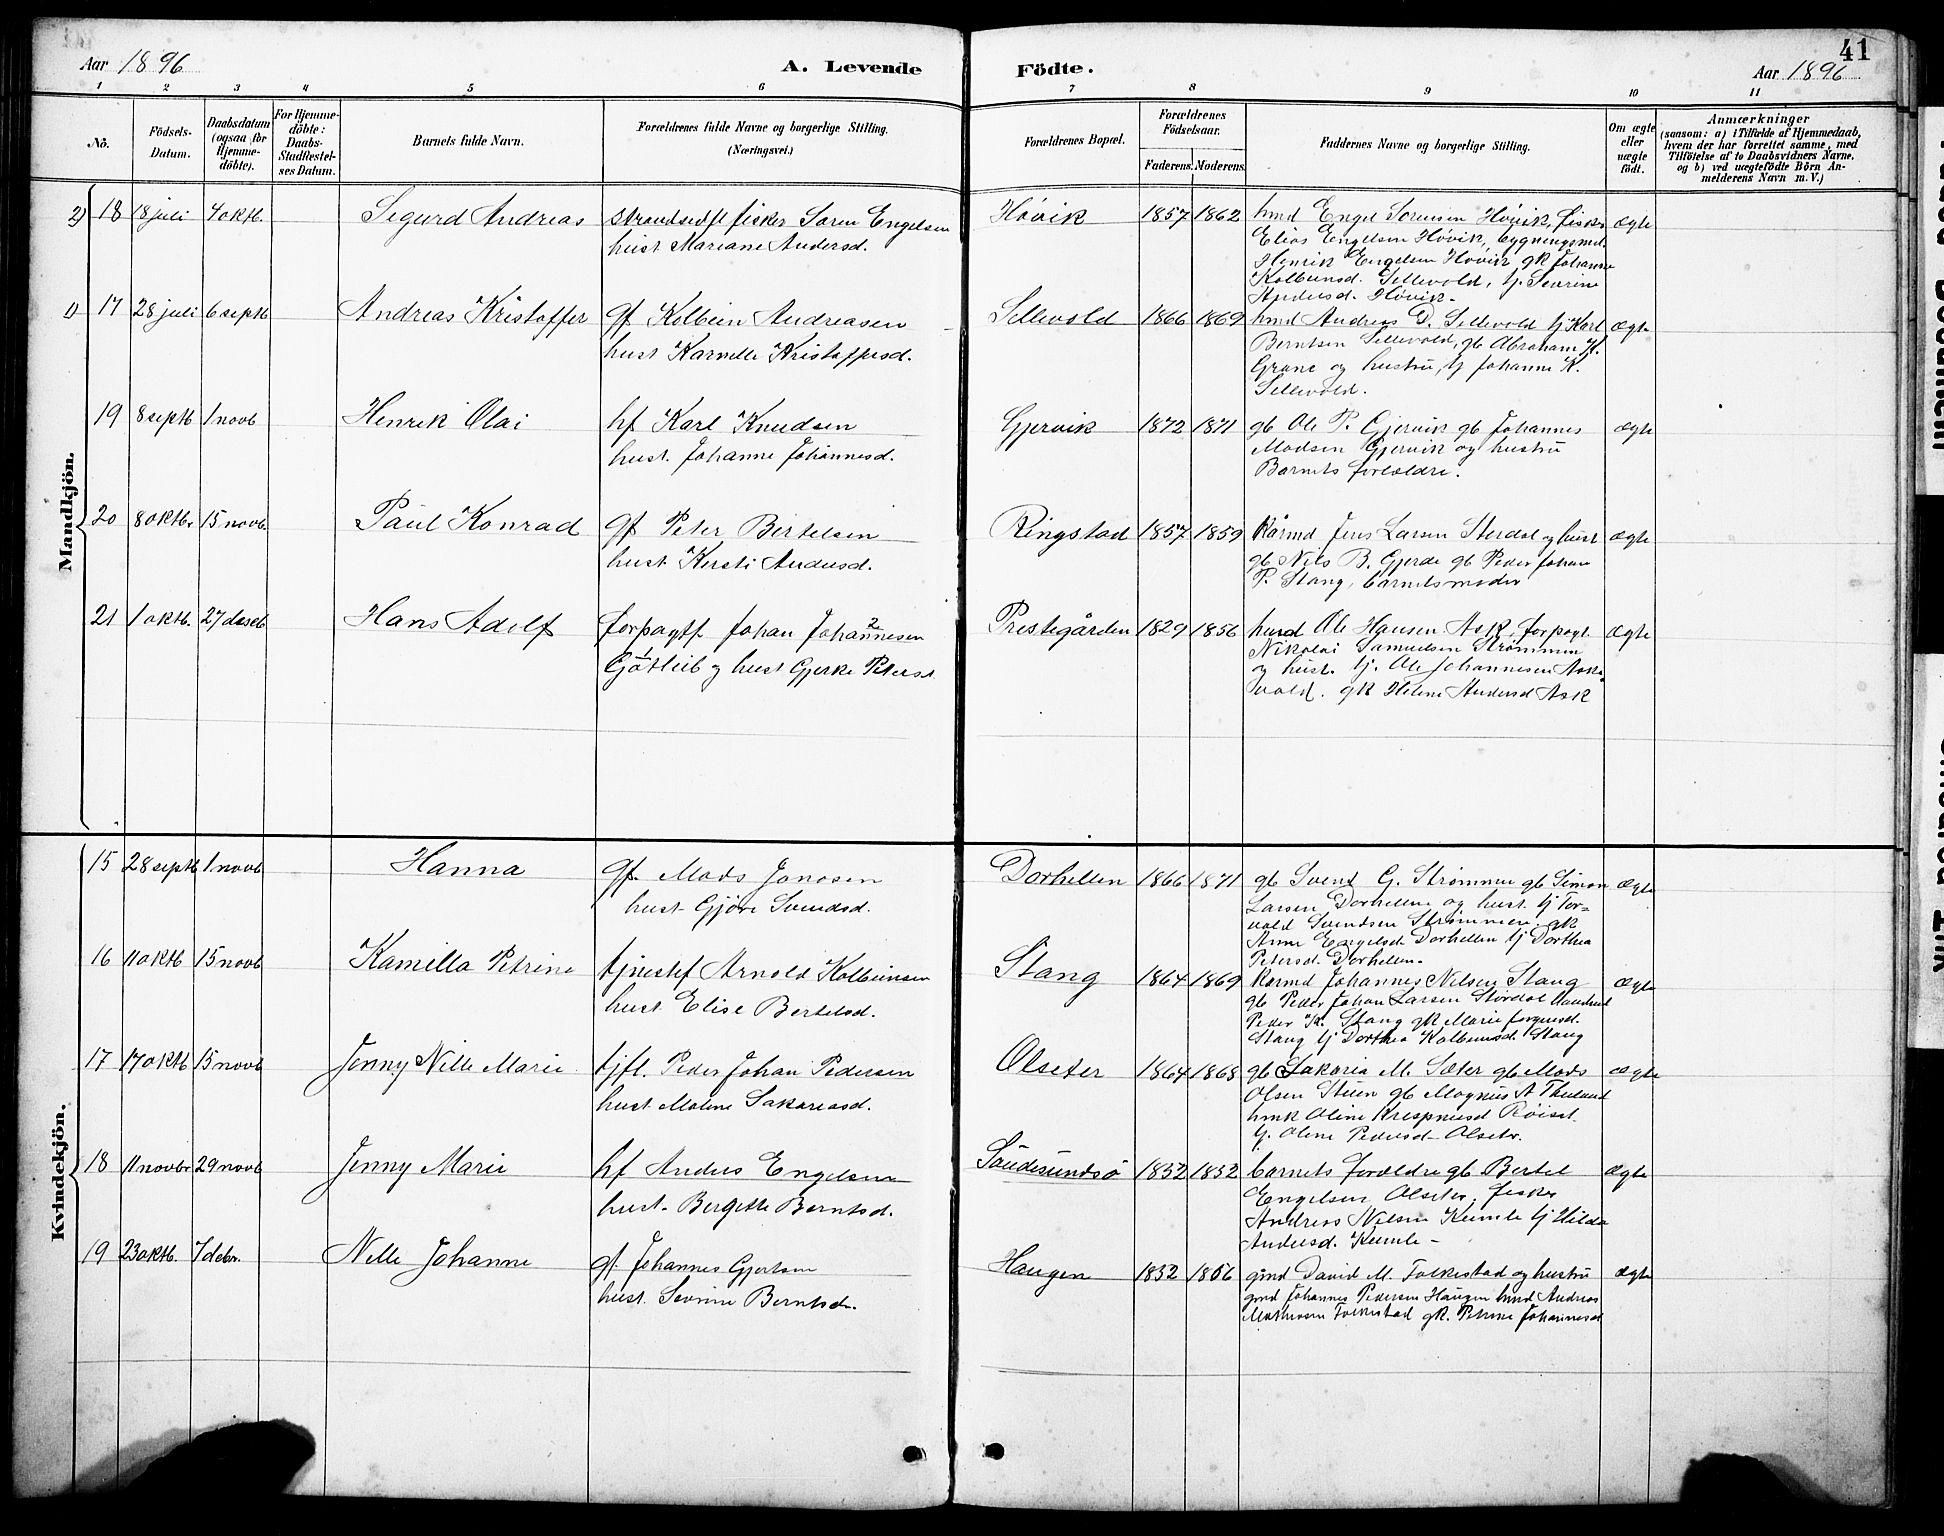 Aar 1896
A. Levende
Födte.
Aar 1896
41
1 2 3 4 5 6 7 8 9 10 11
No.
Födsels-Datum.
Daabsdatum (ogsaa för Hjemmedöbte).
For Hjemmedöbte: Daabs-Stadfestelses Datum.
Barnets fulde Navn.
Forældrenes fulde Navne og borgerlige Stilling. (Næringsvei.)
Forældrenes Bopæl.
Forældrenes Födselsaar.
Faderens. Moderens.
Faddernes Navne og borgerlige Stilling.
Om ægte eller uægte födt.
Anmærkninger
(saasom: a) i Tilfælde af Hjemmedaab,
hvem der har forrettet samme, med
Tilföielse af to Daabsvidners Navne,
og b) ved uægtefödte Börn Anmelderens Navn m. V.)
Mandkjön.
2) 18 18 juli 4 oktb. Sigurd Andreas strandsidf fisker Søren Engelsen
hust Mariane Andersd.
Høvik 1857 1862 hmd Engel Sørensen Høvik, fisker ægte
Elias Engelsen Høvik, bygningsmd.
Henrik Engelsen Høvik, gk Johanne
Kolbeinsd. Sellevold, tj. Severine
Andersd. Høvik.
1) 17 28 juli 6 septb Andreas Kristoffer gf Kolbein Andreasen
hust Karnelle Kristoffersd.
Sellevold 1866 1869 hmd Andreas D. Sellevold tj Karl ægte
Berntsen Sellevold, gb Abraham K.
Grane og hustru, tj Johanne K.
Sellevold.
19 8 septb 1 novb Henrik Olai hf Karl Knudsen
hust. Johanne Johannesd.
Gjervik 1872 1871 gb Ole P. Gjervik gb Johannes ægte
Madsen Gjervik og hustru
Barnets forældre.
20 8 oktbr 15 novb. Paul Konrad gf Peter Bertelsen
hust Kersti Andersd.
Ringstad 1857 1859 Kårmd Jens Larsen Stordal og hust ægte
gb Nils B. Gjerde gb Peder Johan
P. Stang, barnets moder
21 1 oktb. 27 deseb Hans Adolf forpagtf. Johan Johannesen
Gotlieb og hust Gjerke Petersd.
Prestegården 1829 1856 husd Ole Hansen Ask, forpagt. ægte
Nikolai Samuelsen Strømmen
og hust. tj. Ole Johannesen Aske
vold. gk Helene Andersd Ask
Kvindekjön.
15 28 septb 1 novb Hanna gf. Mads Jonasen
hust Gjøre Svendsd.
Dorhellen 1866 1871 gb Svend G. Strømmen gb Simon ægte
Larsen Dorhellen og hust. tj Tor=
vald Svendsen Strømmen. gk
Anne Engelsd. Dorhellen tj Dorthea
Petersd. Dorhellen.
16 11 oktb 15 novb Kamilla Petrine tjenestef Arnold Kolbeinsen
hust Elise Bertelsd.
Stang 1864 1869 Karmd Johannes Nilsen Stang ægte
gb Peder Johan Larsen Stordal
Peder K. Stang gk Marie
Stang tj Dorthea Kolbeinsd. Stang
17 17 oktb 15 novb Jenny Nille Marie tjf. Peder Johan Pedersen
hust Malene Sakariasd.
Olseter 1864 1868 gb Sakaria M. Sæter gb Mads ægte
Olsen Stuen gb Magnus A Theuland
hmk Oline Krespinusd Røiset
tj. Oline Pedersd. Olseter.
18 11 novbr 29 novb Jenny Marie hf Anders Engelsen
hust. Bergitte Berntsd.
Saudesundsø 1852 1852 barnets forældre gb Bertel ægte
Engelsen Olseter, fisker
Andreas Nilsen Kumle tj Hilda
Andersd. Kumle
19 23 oktb. 7 debr. Nille Johanne gf. Johannes Gjertsen
hust. Sevrine Berntsd.
Haugen 1852 1856 gmd David M. Folkestad og hustru ægte
gmd Johannes Pedersen Haugen hmd Andreas
Mathiasen Folkestad gk. Petrine Johannesd